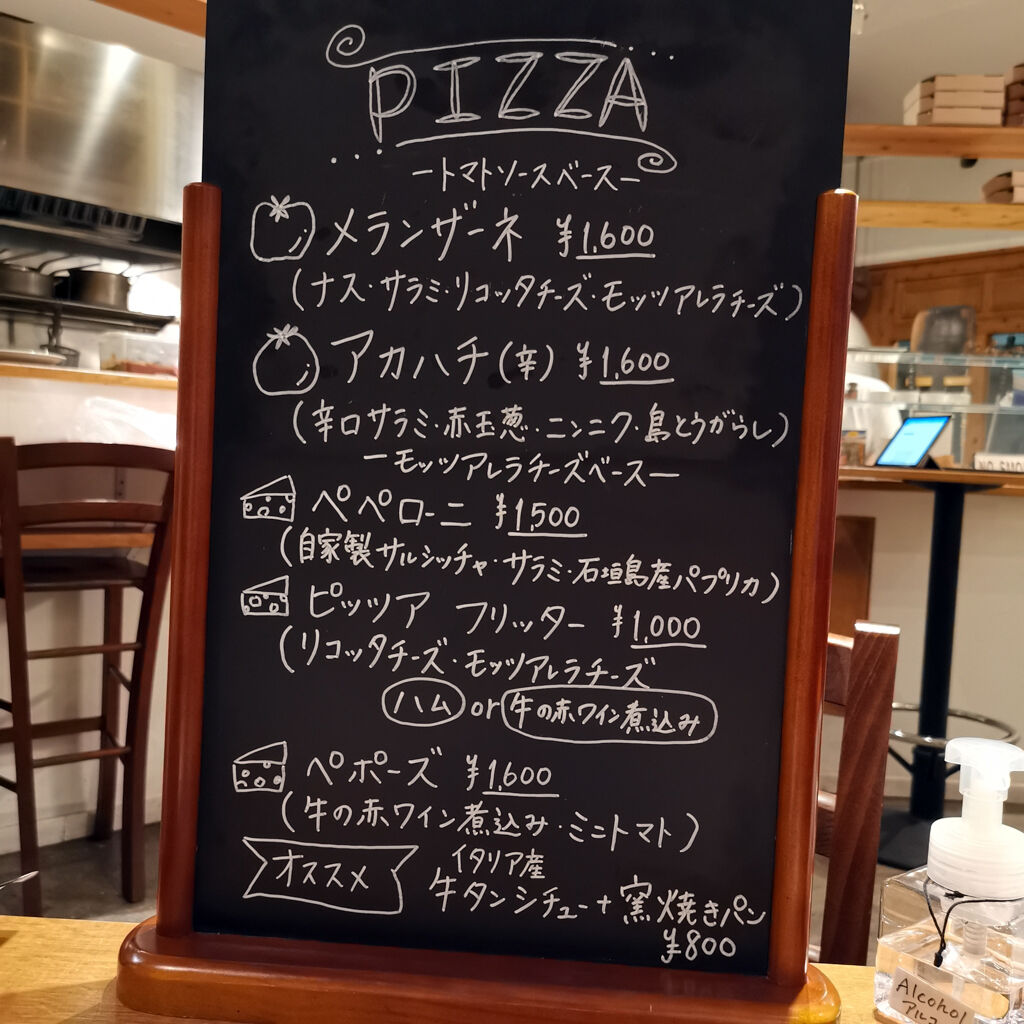 PIZZA
ートマトソースベースー
メランザーネ ¥1,600
(ナス・サラミ・リコッタチーズ・モッツアレラチーズ)
アカハチ(辛) ¥1,600
(辛口サラミ・赤玉葱・ニンニク・島とうがらし)
ーモッツアレラチーズベースー
ペペローニ ¥1,500
(自家製サルシッチャ・サラミ・石垣島産パプリカ)
ピッツア フリッター ¥1,000
(リコッタチーズ・モッツアレラチーズ
ハム or 牛の赤ワイン煮込み
ペポーズ ¥1,600
(牛の赤ワイン煮込み・ミニトマト)
オススメ
イタリア産
牛タンシチュー+窯焼きパン
¥800
Alcohol
アルコ